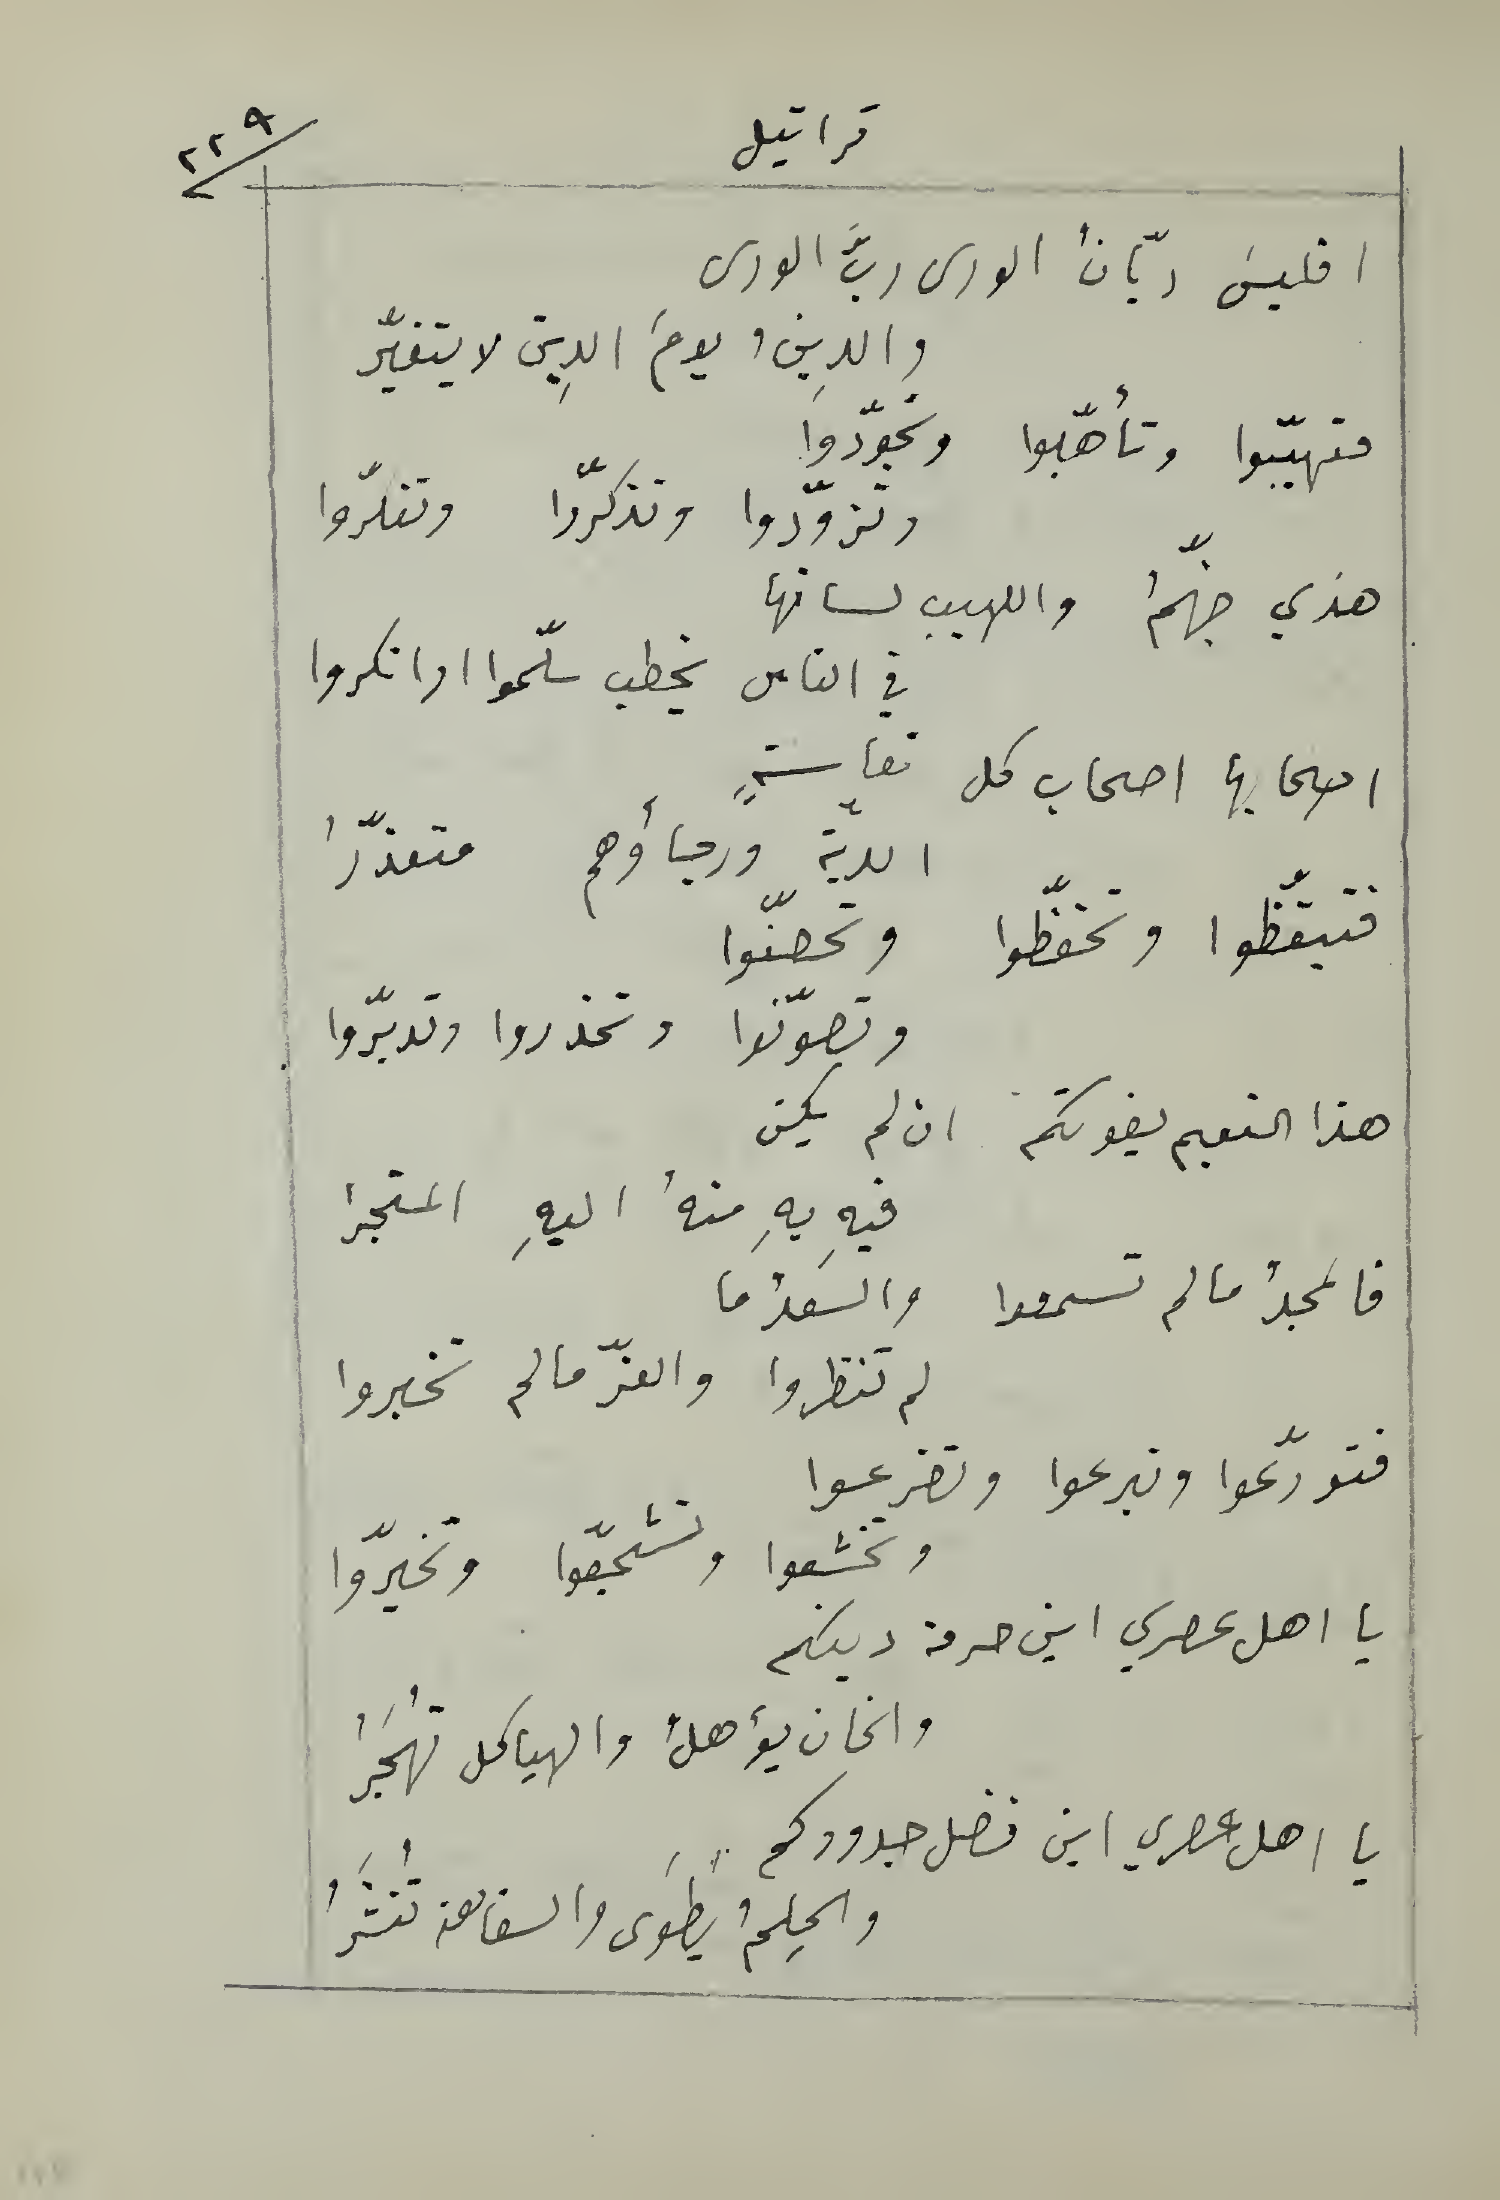 تراتيل
٢٢٩
افليسَ ديّانُ الورى ربَّ الورى
والدِينُ يومَ الدِين لا يتغيّر
فتهيّبوا وتأهّبوا وتجوّدوا
وتزوّدوا وتذكّروا وتفكّروا
هذي جهنّمُ واللهيب لسانها
في الناس يخطب سلّموا او انكروا
اصحابها اصحاب كل تعاسةٍ
ابديّة ورجاؤهم متعذّرُ
فتيقّظوا وتحفّظوا وتحصّنوا
وتصوّنوا وتحذروا وتدبّروا
هذا النعيم يفوتكم ان لم يكن
فيهِ بهِ منهُ اليهِ المتجرُ
فالمجدُ ما لم تسمعوا والسَعدُ ما
لم تنظروا والعزّ ما لم تخبروا
فتورّعوا وتبرعوا وتضرعوا
وتخشعوا وتشجّعوا وتخيّروا
يا اهل عصري اين حرمة دينكم
والخان يؤهلُ والهياكل تُهجَرُ
يا اهل عصري اين فضل جدودكم
والحِلمُ يُطوَى والسفاهة تُنشَرُ